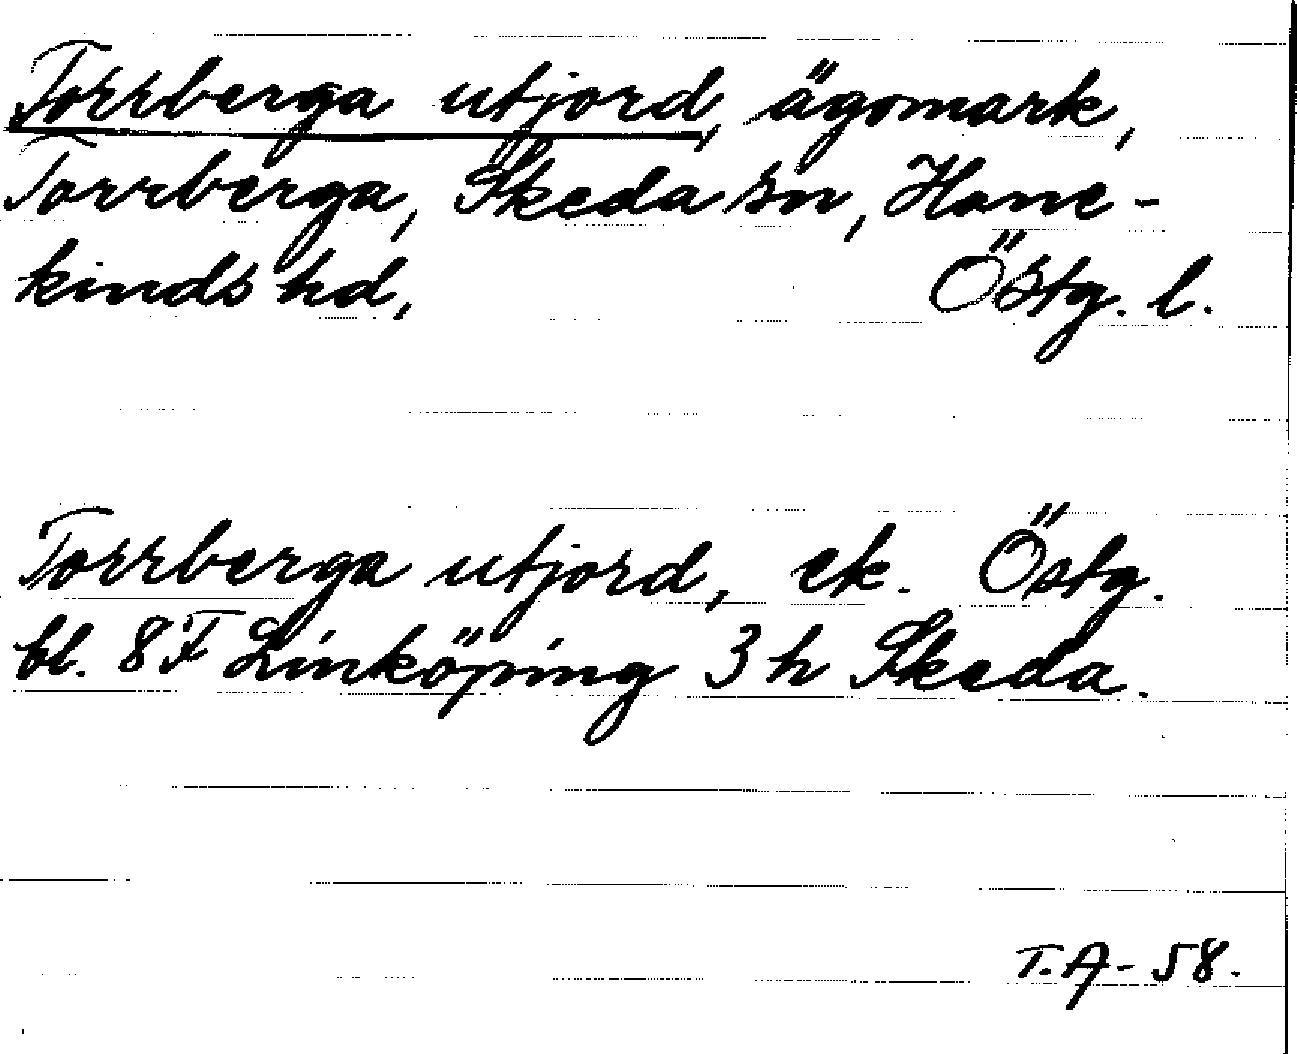 Torrberga utjord, ägomark,
Torrberga, Skeda sn, Hane-
kinds hd, Östg. l.
Torrberga utjord, ek. Östg.
bl. 8F Linköping 3 h Skeda.
T.A-58.